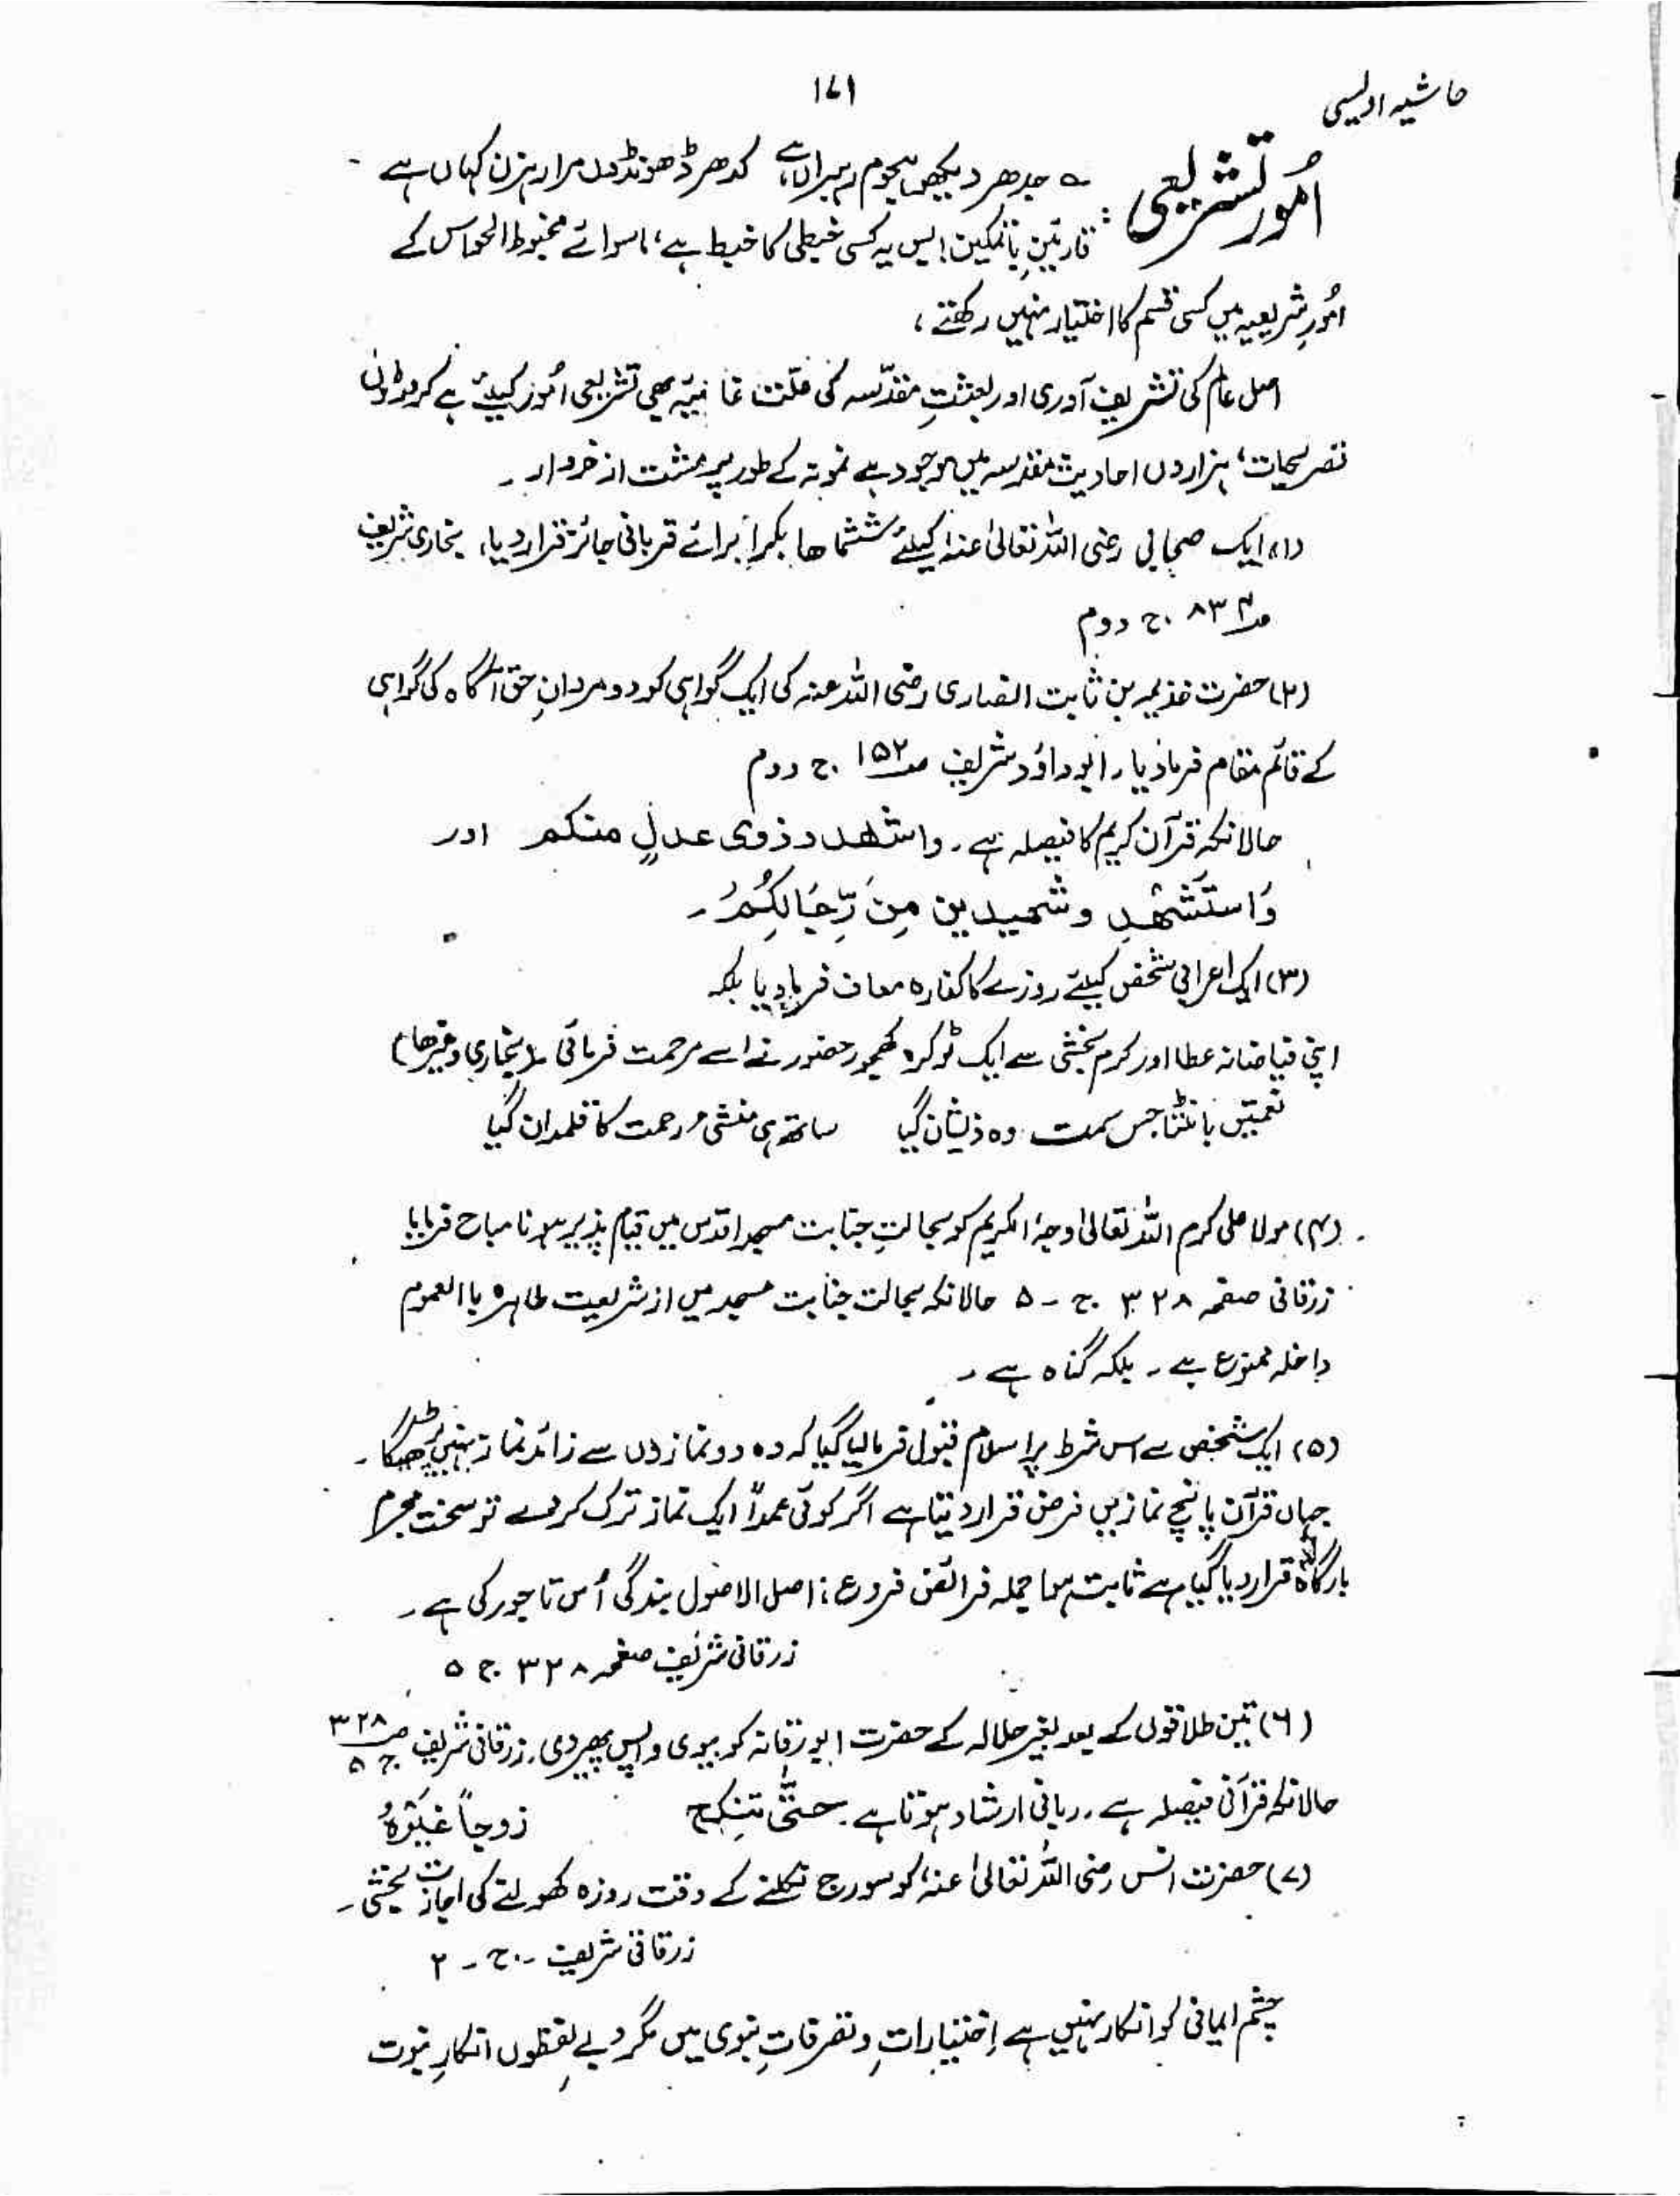 حاشیہ اویسی
۱۷۱
اُمور تشریعی : ؎ جدھر دیکھوں ہجوم رہبراں ہے کدھر ڈھونڈوں مرا رہزن کہاں ہے -
قارئینِ باتمکین! لیس یہ کسی خبطی کا خبط ہے، ماسوائے مخبوط الحواس کے
امُورِ شریعیہ میں کسی قسم کا اختیار نہیں رکھتے ،
اصل عالم کی تشریف آوری اور بعثتِ مقدّسہ کی علّت غائیہ بھی تشریعی اُمور کیلئے ہے کروڑوں
تصریحات، ہزاروں احادیث مقدسہ میں موجود ہے نمونہ کے طور پر مشت از خروار ۔
(۱) ایک صحابی رضی اللہ تعالیٰ عنہ کیلئے ششماہا بکرا برائے قربانی جائز قرار دیا، بخاری شریف
صـ ۸۳۴ . ج دوم
(۲) حضرت خذیمہ بن ثابت انصاری رضی اللہ عنہ کی ایک گواہی کو دو مردانِ حق آگاہ کی گواہی
کے قائم مقام فرما دیا ۔ ابو داؤد شریف صـ ۱۵۲ . ج دوم
حالانکہ قرآن کریم کا فیصلہ ہے ۔ واشھد و ذوی عدلٍ منکم اور
وَاستَشْھِد و شھیدین مِنَ رِّجَالِکُمُ ۔
(۳) ایک اعرابی شخص کیلئے روزے کا کفارہ معاف فرما دیا بلکہ
اپنی فیاضانہ عطا اور کرم بخشی سے ایک ٹوکرہ کھجور حضور نے اسے مرحمت فرمائی ۔ (بخاری وغیرھا)
نعمتیں بانٹتا جس سمت وہ ذیشان گیا ساتھ ہی منشیٔ رحمت کا قلمدان گیا
(۴) مولا علی کرم اللہ تعالیٰ وجہُ الکریم کو بحالتِ جنابت مسجد اقدس میں قیام پذیر ہونا مباح فرمایا
زرقانی صفحہ ۳۲۸ ج - ۵ حالانکہ بحالت جنابت مسجد میں از شریعت طاہرہ باالعموم
داخلہ ممنوع ہے ۔ بلکہ گناہ ہے ۔
(۵) ایک شخص سے اس شرط پر اسلام قبول فرمالیا گیا کہ وہ دو نمازوں سے زائد نماز نہیں پڑھیگا ۔
جہاں قرآن پانچ نمازیں فرض قرار دیتا ہے اگر کوئی عمداً ایک نماز ترک کردے تو سخت مجرم
بارگاہ قرار دیا گیا ہے ثابت ہوا جملہ فرائض فروع : اصل الاصول بندگی اُس تاجور کی ہے ۔
زرقانی شریف صفحہ ۳۲۸ ج ۵
(۶) تین طلاقوں کے بعد بغیر حلالہ کے حضرت ابو رقانہ کو بیوی واپس پھیر دی . زرقانی شریف صـ ۳۲۸ ج ۵
حالانکہ قرآنی فیصلہ ہے ۔ ربانی ارشاد ہوتا ہے ۔ حتّٰی تَنکِحَ زوجاً غَیْرَہُ
(۷) حضرت انس رضی اللہ تعالیٰ عنہُ کو سورج نکلنے کے وقت روزہ کھولنے کی اجازت بخشی ۔
زرقانی شریف - ج - ۲
چشم ایمانی کو انکار نہیں ہے اِختیاراتِ و تصرفاتِ نبوی میں مگر دبے لفظوں انکارِ نبوت